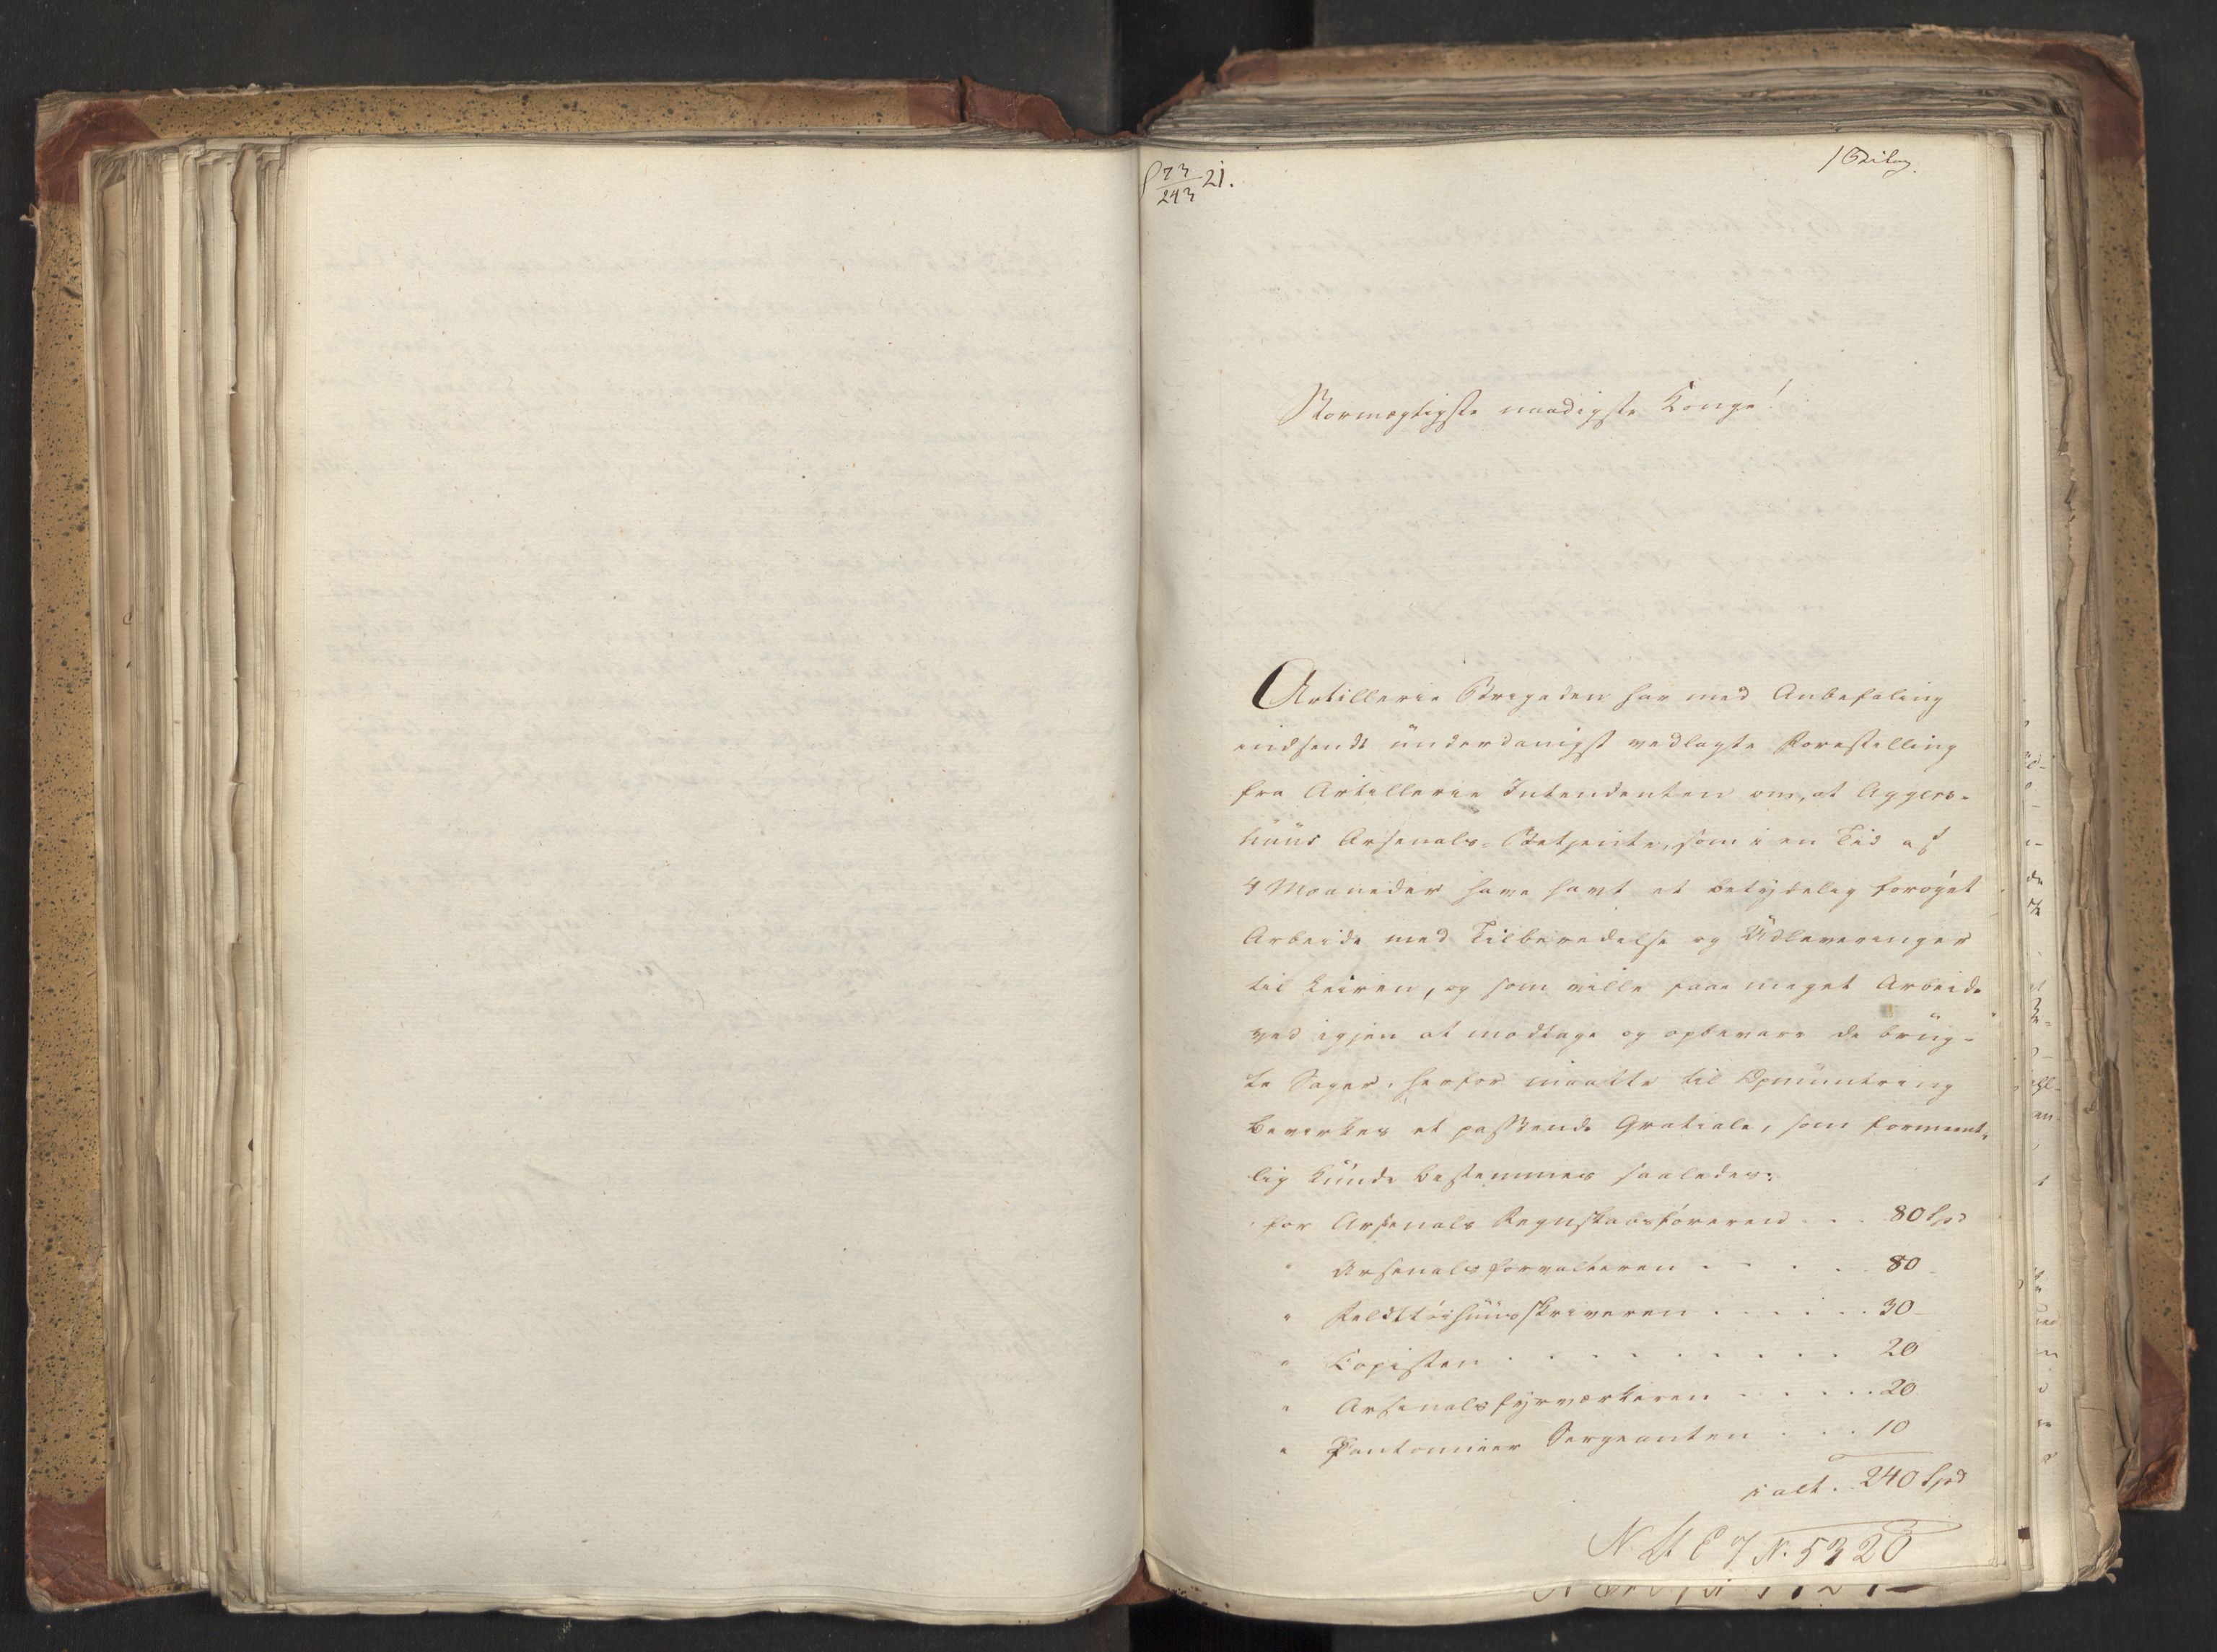 73/243 21.
1 Bilag.
Stormægtigste naadigste Konge!
Artillerie Brigaden har med Anbefaling
indsendt ünderdanigst vedlagte Forestilling
fra Artillerie Intendenten om, at Aggers-
hüüs Arsenals-Betjente, som i en Tid af
4 Maaneder have havt et betydelig forøget
Arbeide med Tilberedelse og Üdleveringer
til Leiren, og som ville faae meget Arbeide
ved igjen at modtage og opbevare de brüg-
te Sager, herfor maatte til Opmüntring
bevirkes et passende Gratiale, som forment-
lig künde bestemmes saaledes:
for Arsenals Regnskabsføreren . . . 80 Spd
" Arsenalsforvalteren . . . . 80
" Feldttøihüüsskriveren . . . . . 30
" Copisten . . . . . . . . . 20
" Arsenalsfyrværkeren . . . . . 20
" Pantomiteer Sergeanten . . . 10
i alt . 240 Spd
N. 5320